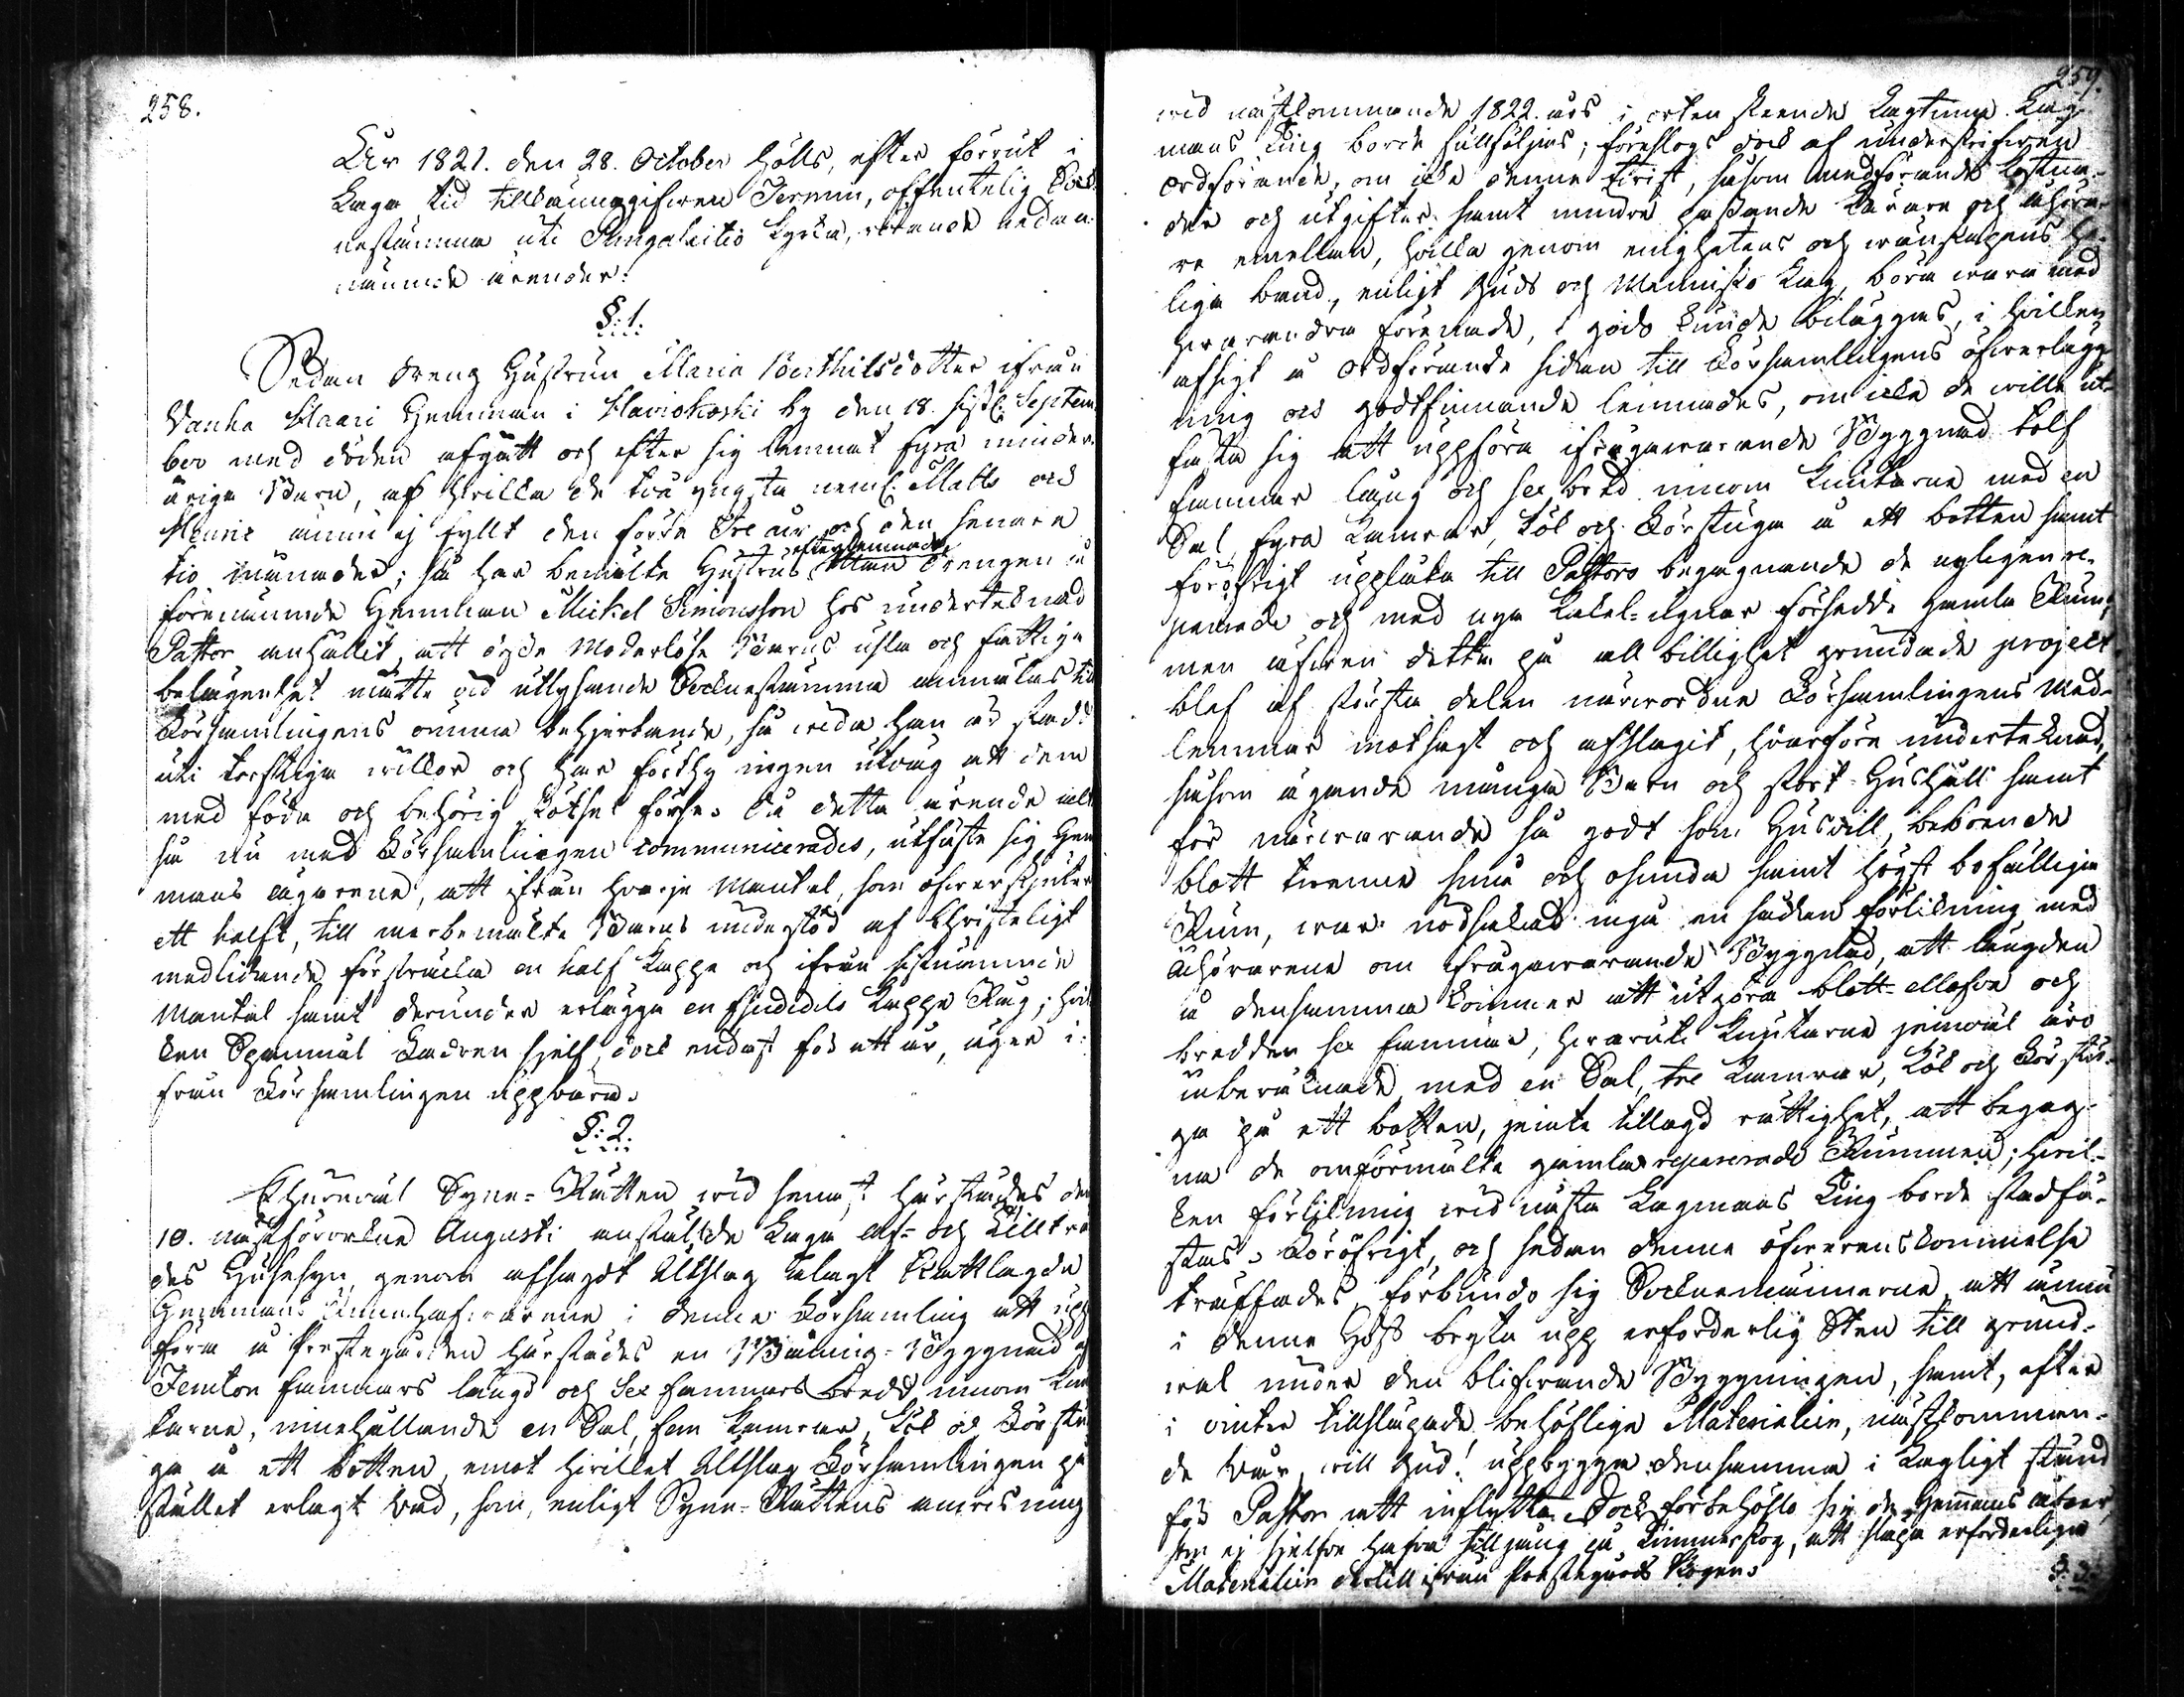 258.
År 1821. den 28. October hölls, efter förrut i
Laga tid tillkännagifwen Termin, offentelig Sock-
nestämma uti Pungalaitio kyrka, rörande nedan-
nämnde ärender:
§: 1:
Sedan Dreng Hustrun Maria Berthilsdotter ifrån
Vanha Klaari Hemman i Haviokoski by den 18. sistl. Septem-
ber med döden afgått och efter sig lemnat fyra minder-
årige Barn, af hvilka de två yngsta neml. Matts och
Henric ännu ej fyllt den förre Tre år och den senare
tio månader; så har bemälte Hustrus efterlemnade Man Drengen å
förenämnde Hemman Mickel Simonsson hos undertecknad
Pastor anhållit, att desse Moderlöse Barns usla och fattiga
belägenhet måtte vid utlysande Socknestämma anmälas till
Församlingens ömma behjertande, så vida han är stadd
uti torftiga willkor och har förthy ingen utväg att dem
med föda och behörig skötsel förse. Då detta ärende allt-
så nu med Församlingen communicerades, utfäste sig Hem-
mans ägarene, att ifrån hvarje Mantal, som öfwerskjuter
ett halft, till merbemälte Barns understöd af Christeligt
medlidande försträcka en half kappe och ifrån sistnämnde
Mantal samt derunder erlägga en fjerdedels kappe Råg; hvil-
ken Spannmål Fadren sjelf, dock endast för ett år, äger i-
från Församlingen uppbära.
§: 2:
Ehuruväl Syne-Rätten wid senast härstädes den
10. nästförvekne Augusti anställde Laga af- och tillträ-
des Husesyn, genom afsagdt Utslag ålagt skattlagde
Hemmans innehafwarene i denna Församling att upp-
föra å Prestegården härstädes en Måning-Byggnad af
Femton famnars längd och Sex famnars bredd innom knu-
tarne, innehållande en Sal, fem kamrar, kök och Förstu-
ga å ett botten, emot hwilket Utslag Församlingen på
stället erlagt wad, som, enligt Syne-Rättens anvisning
259.
wid nästkommande 1822. års i orten skeende Lagtima Lag-
mans Ting borde fullföljas; föreslogs dock af underskrifwen
Ordförande, om icke denna twist, såsom medförande kostna-
der och utgifter samt mindre passande Lärare och åhöra-
re emellan, hvilka genom enighetens och wänskapens he-
liga band, enligt Guds och Mennisko Lag, böra wara med
hvarandra förenade, i godo kunde biläggas, i hvilken
afsigt å Ordförande sidan till Församlingens öfwerlägg-
ning och godtfinnande lemnades, om icke de wille ut-
fästa sig att uppföra ifrågawarande Byggnad tolf
famnar lång och sex bred innom knutarne med en
Sal, fyra kamrar, kök och Förstuga å ett botten samt
föröfrigt upplåta till Pastors begagnande de nyligen re-
parerade och med nya kakel-ugnar försedde gamla Rum;
men äfwen detta på all billighet grundade project
blef af största delen närwordne Församlingens Med-
lemmar motsagt och afslagit, hvarföre undertecknad,
såsom ägande många Barn och stort Hushåll samt
för närwarande så godt som Husvill, beboende
blott twenne små och osunda samt högst bofälliga
Rum, war nödsakad ingå en sådan förlikning med
Åhörarene om ifrågawarande Byggnad, att längden
å densamma kommer att utgöra blott ellofva och
bredden sex famnar, hvaruti knutarne jemwäl äro
inberäknade, med en Sal, tre kamrar, kök och Förstu-
ga på ett botten, jemte tillagd rättighet, att begag-
na de omförmälte gamla reparerade Rummen; hvil-
ken förlikning wid nästa Lagmans Ting borde stadfä-
stas. Föröfrigt, och sedan denna öfwerenskommelse
träffades, förbundo sig Socknemännerne att ännu
i denna Höst bryta upp erforderlig Sten till grund-
wal under den blifwande Byggningen, samt, efter
i vinter tillskapade behöflige Materialier, nästkomman-
de Vår, will Gud! uppbygga densamma i Lagligt stånd
för Pastor att inflytta. Dock förbehöllo sig de Hemmans åboer,
som ej sjelfwe hafwa tillgång på Timmerskog, att släpa erforderliga
Materialier dertill ifrån Prestegårds skogen.
§: 3: